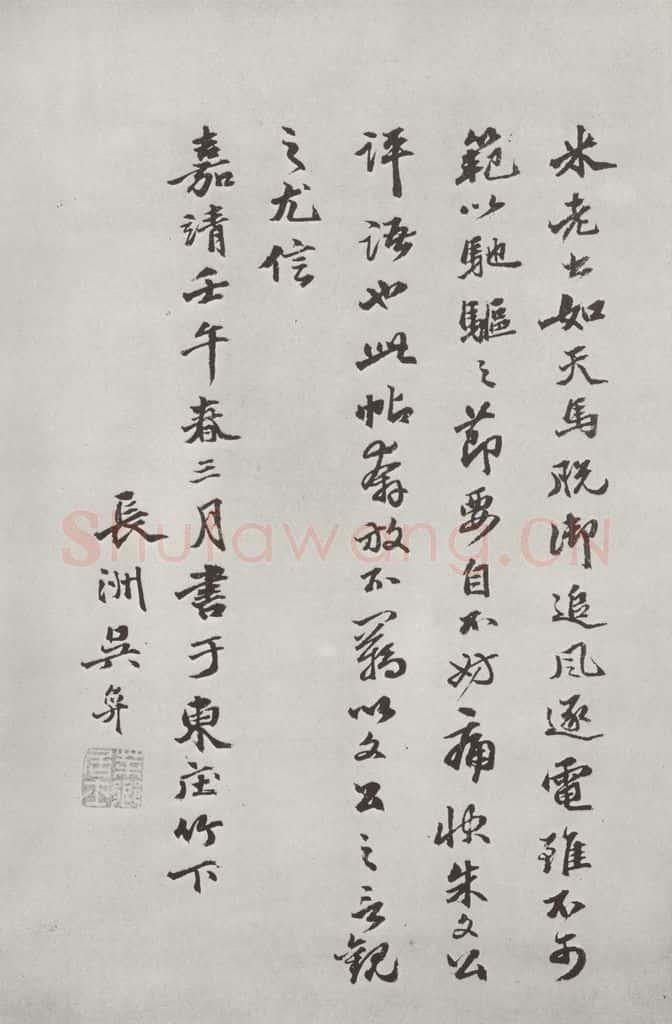 米老書如天馬脫御追風逐電雖不可
範以馳驅之節要自不妨痛快朱文公
評語也此帖奔放不羈以文公之言觀
之尤信
嘉靖壬午春三月書于東庄竹下
長洲吳弇
Shufawang.CN